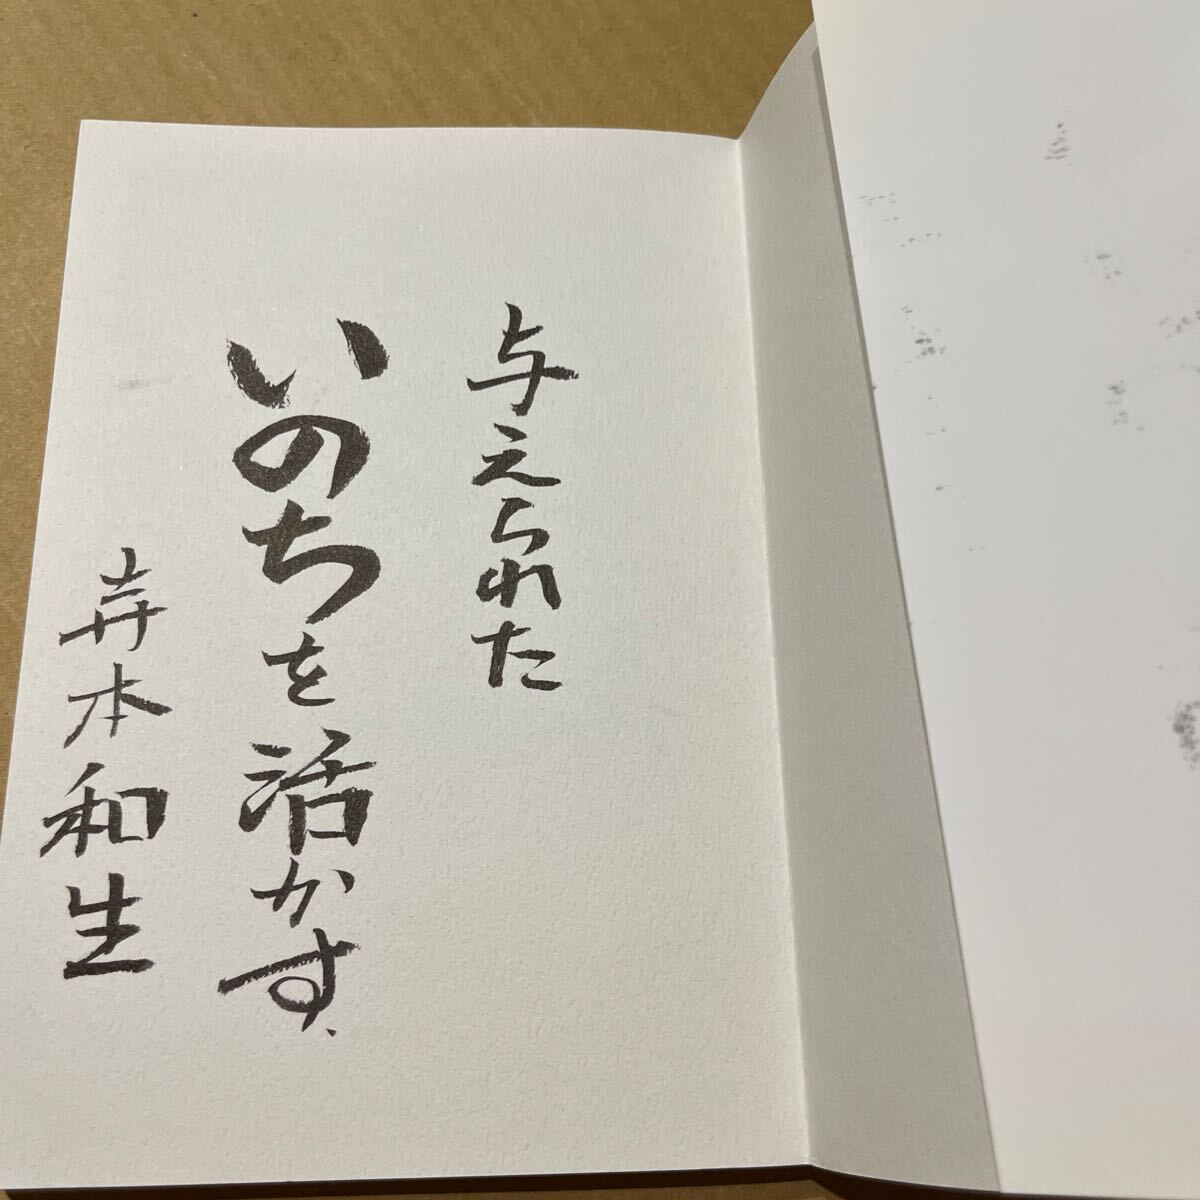 与えられた
いのちを活かす、
本和生